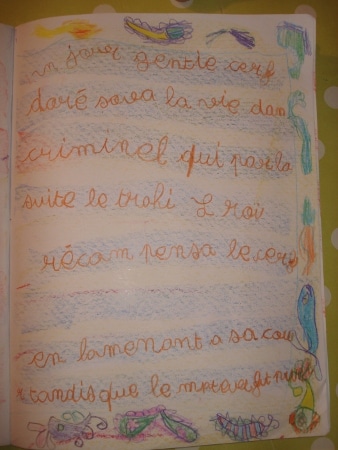 un jour gentie cerf
doré sova la vie dun
criminel qui parla
suite le trahi L roi
récompensa le cerf
en lamenant a sa cour
tandis que le